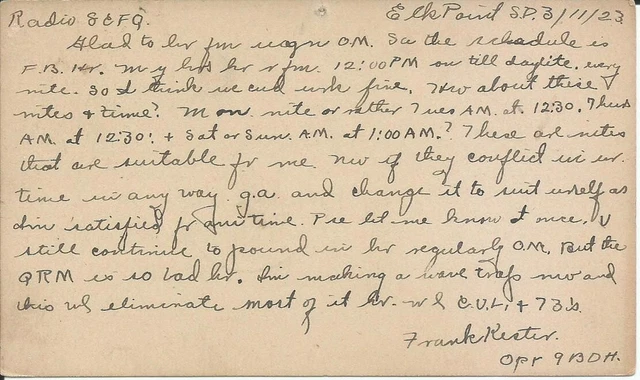 Radio 8CFQ. Elk Point S.D. 3/11/23
Glad to hr fm u agn O.M. Sa the schedule is
F.B. Hr. My hrs hr r fm. 12:00 PM on till daylite. every
nite. So I think we cud wrk fine. How about these
nites & time? Mon nite or rather Tues AM. at 12:30. Thurs
AM. at 12:30! & Sat or Sun. A.M. at 1:00 AM.? These are nites
that are suitable fr me. Nw if they conflict in ur.
time in any way. g.a. and change it to suit urself as
I'm satisfied fr any time. Pse let me know at once. U
still continue to pound in hr regularly O.M. But the
QRM is so bad hr. I'm making a wave trap nw and
this wl eliminate most of it hr. wl C.U.L. & 73's.
Frank Kester.
Opr 9BDH.